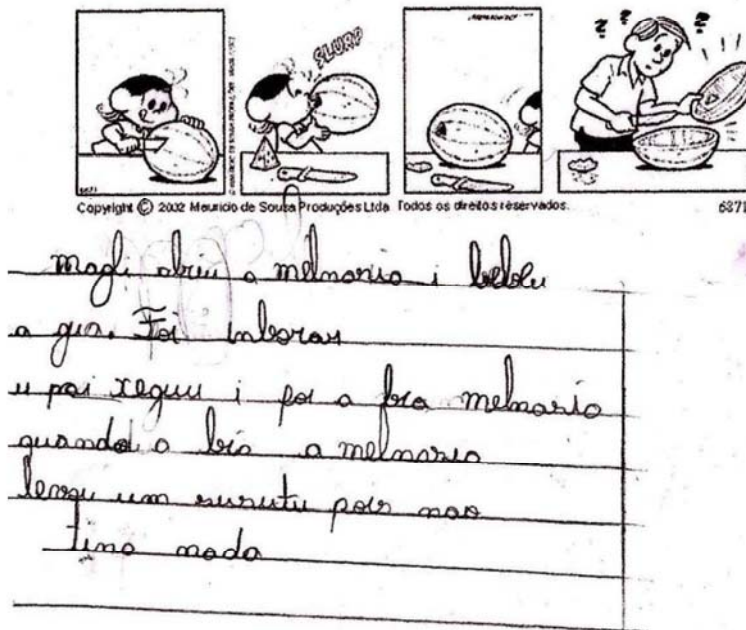 SLURP
Copyright © 2002 Mauricio de Sousa Produções Ltda. Todos os direitos reservados. 6871
magli abriu a melnaria i bebeu
a gua. Foi inboras
u pai xeguu i foi a bra melnasia
quando a bia a melnasia
levou um susutu pois nao
tina nada